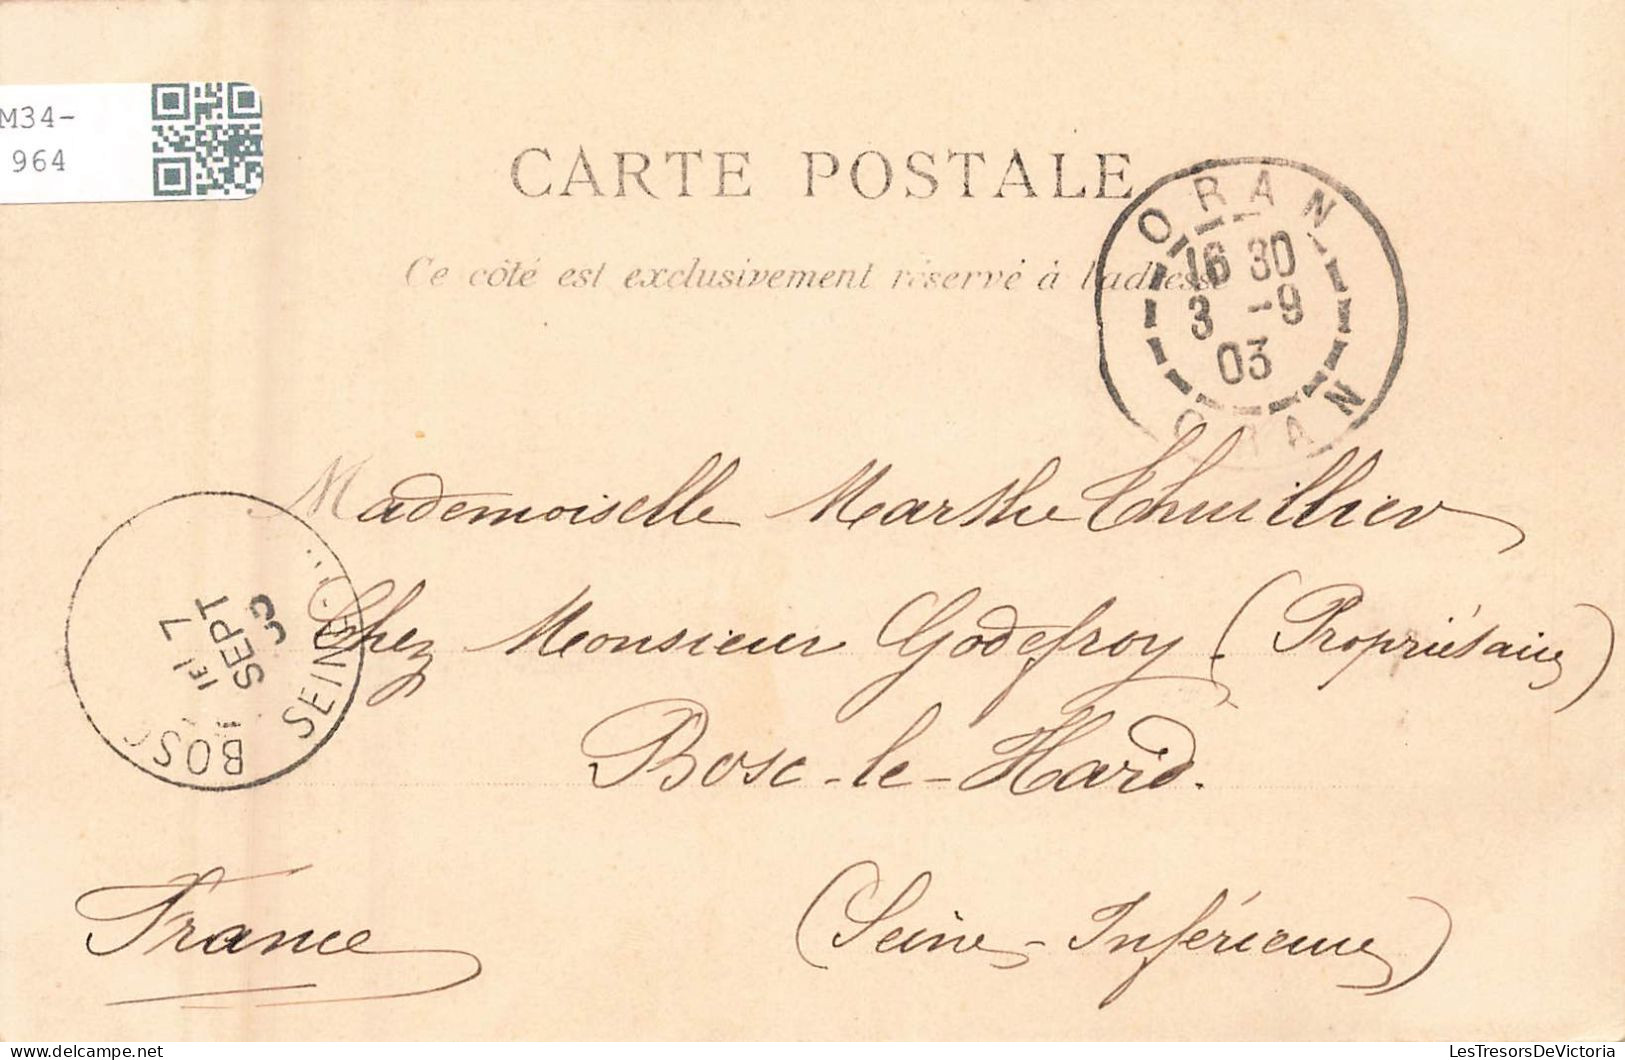 M34-
964
CARTE POSTALE
Ce côté est exclusivement réservé à l'adresse
ORAN
16 30
3 -9
03
ORAN
Mademoiselle Marthe Thuillier
Chez Monsieur Godefroy (Propriétaire)
Bosc-le-Hard.
France
(Seine-Inférieure)
7
SEPT
BOSC
SEINE
LesTresorsDeVictoria